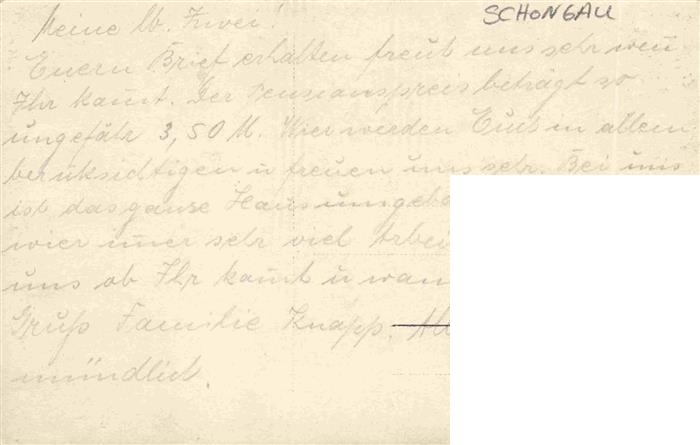 SCHONGAU
Meine lb. Zwei!
Euern Brief erhalten freut uns sehr wen̄
Ihr kom̄t. Der Pensionspreis beträgt so
ungefähr 3,50 M. Wier werden Euch in allem
berüksichtigen u freuen uns sehr. Bei uns
ist das ganse Haus
wier im̄er sehr viel
uns ob Ihr kom̄t u
Gruß Familie Knapp.
mündlich.